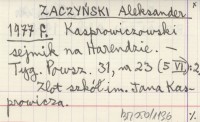 ZACZYŃSKI Aleksander
1977 f. Kasprowiczowski
sejmik na Harendzie. —
Tyg. Powsz. 31, na 23 (5 VI) :2
Zlot szkół im. Jana Kas-
prowicza.